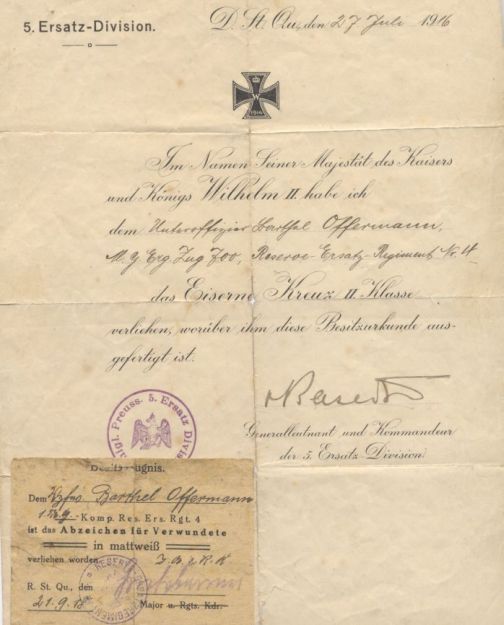 5. Ersatz-Division.
D. St. Qu., den 27 Juli 1916
W
1914
Im Namen Seiner Majestät des Kaisers
und Königs Wilhelm II. habe ich
dem Unteroffizier Barthel Offermann,
M. G. Erg. Zug 700, Reserve-Ersatz-Regiment Nr. 4
das Eiserne Kreuz II Klasse
verliehen, worüber ihm diese Besitzurkunde aus-
gefertigt ist.
Kgl. Preuss. 5. Ersatz Divis
Basedow
Generalleutnant und Kommandeur
der 5. Ersatz-Division
Besitzzeugnis.
Dem Vzfw. Barthel Offermann
Komp. Res. Ers. Rgt. 4
ist das Abzeichen für Verwundete
in mattweiß
verliehen worden
R. St. Qu., den
21.9.18
Major u. Rgts. Kdr.